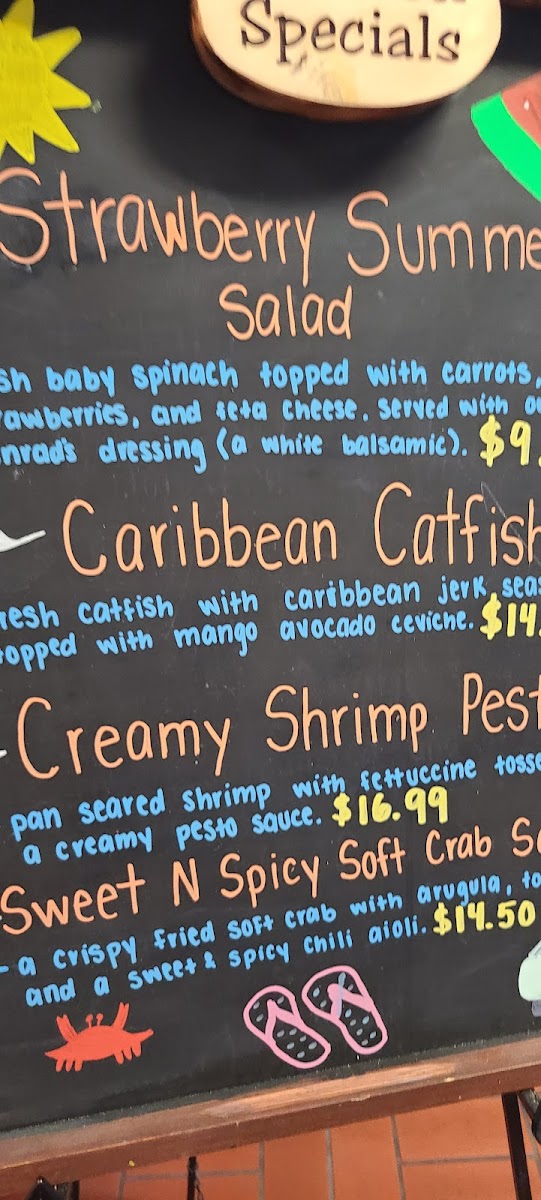 Specials
Strawberry Summe
Salad
sh baby spinach topped with carrots,
rawberries, and feta cheese. Served with ou
nrad's dressing (a white balsamic). $9.
Caribbean Catfish
resh catfish with caribbean jerk seas
topped with mango avocado ceviche. $14.
Creamy Shrimp Pest
pan seared shrimp with fettuccine tosse
a creamy pesto sauce. $16.99
Sweet N Spicy Soft Crab Sa
- a crispy fried soft crab with arugula, to
and a sweet & spicy chili aioli. $14.50